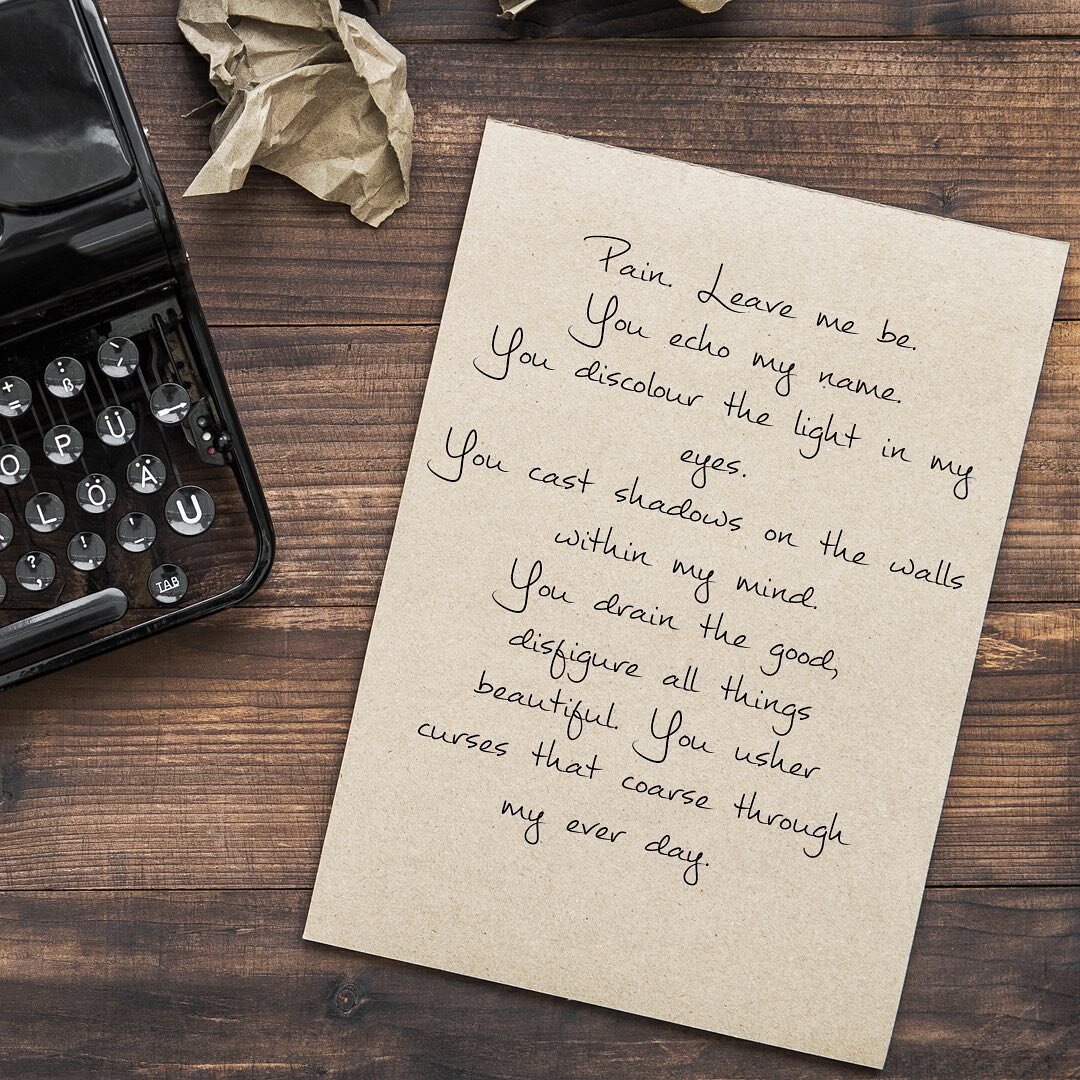 Pain. Leave me be.
You echo my name.
You discolour the light in my
eyes.
You cast shadows on the walls
within my mind.
You drain the good,
disfigure all things
beautiful. You usher
curses that coarse through
my ever day.
+ : ß ´ `
=
O P Ü
L Ö Ä U
? , ! . ' -
TAB